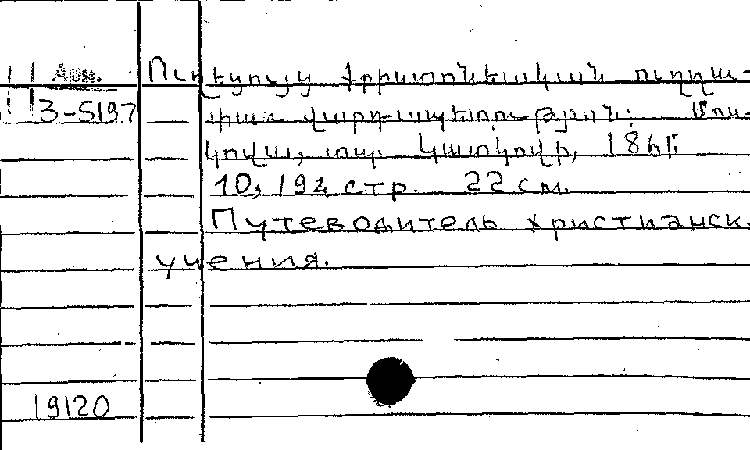 Арм. Ուղեցոյց քրիստոնէական ուղղա-
3-5197 փառ վարդապետութեան: Մոս-
կովա, տպ. Կատկովի, 1861:
10, 192 стр. 22 см.
Путеводитель христианск.
учения.
19120